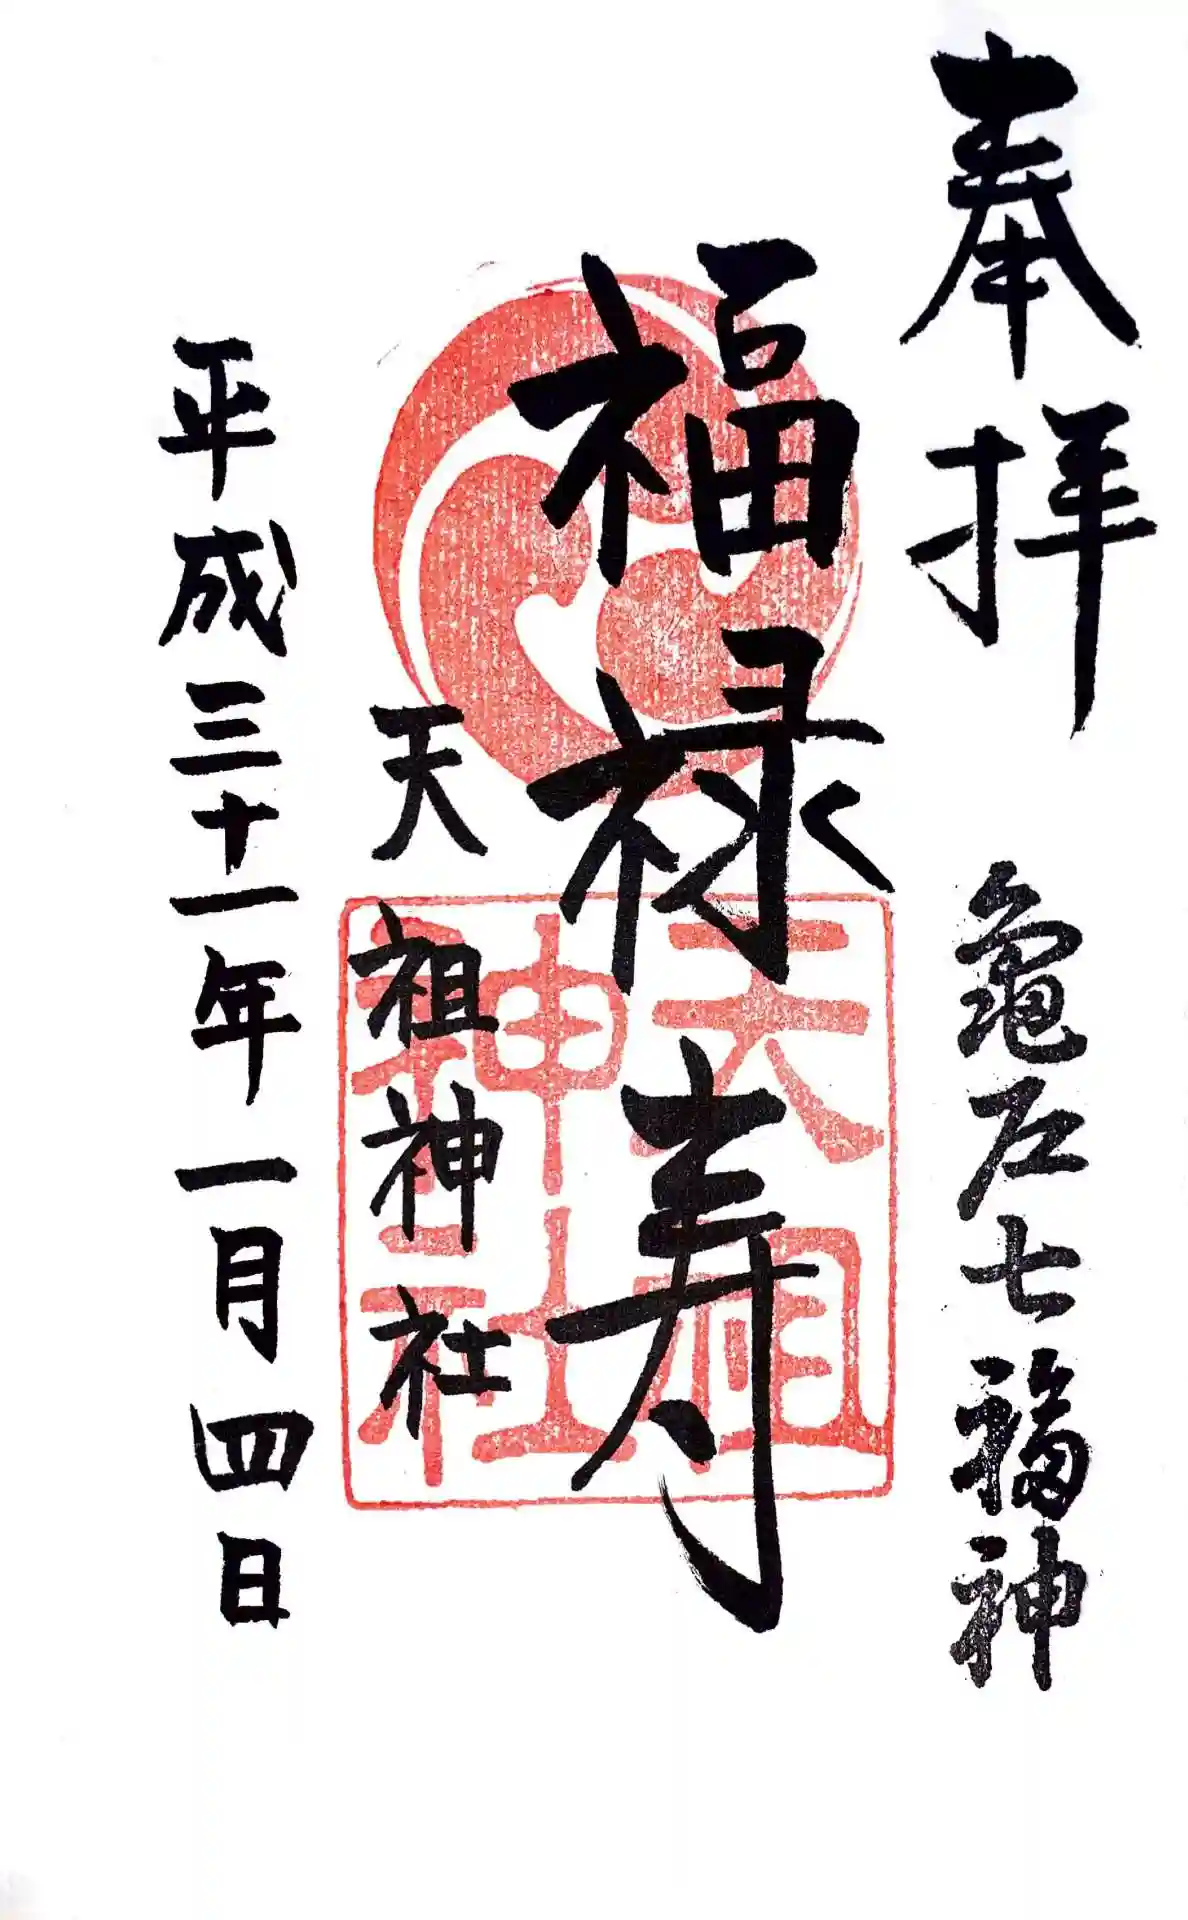 奉拝
亀戸七福神
福禄寿
天祖神社
天祖神社
平成三十一年一月四日